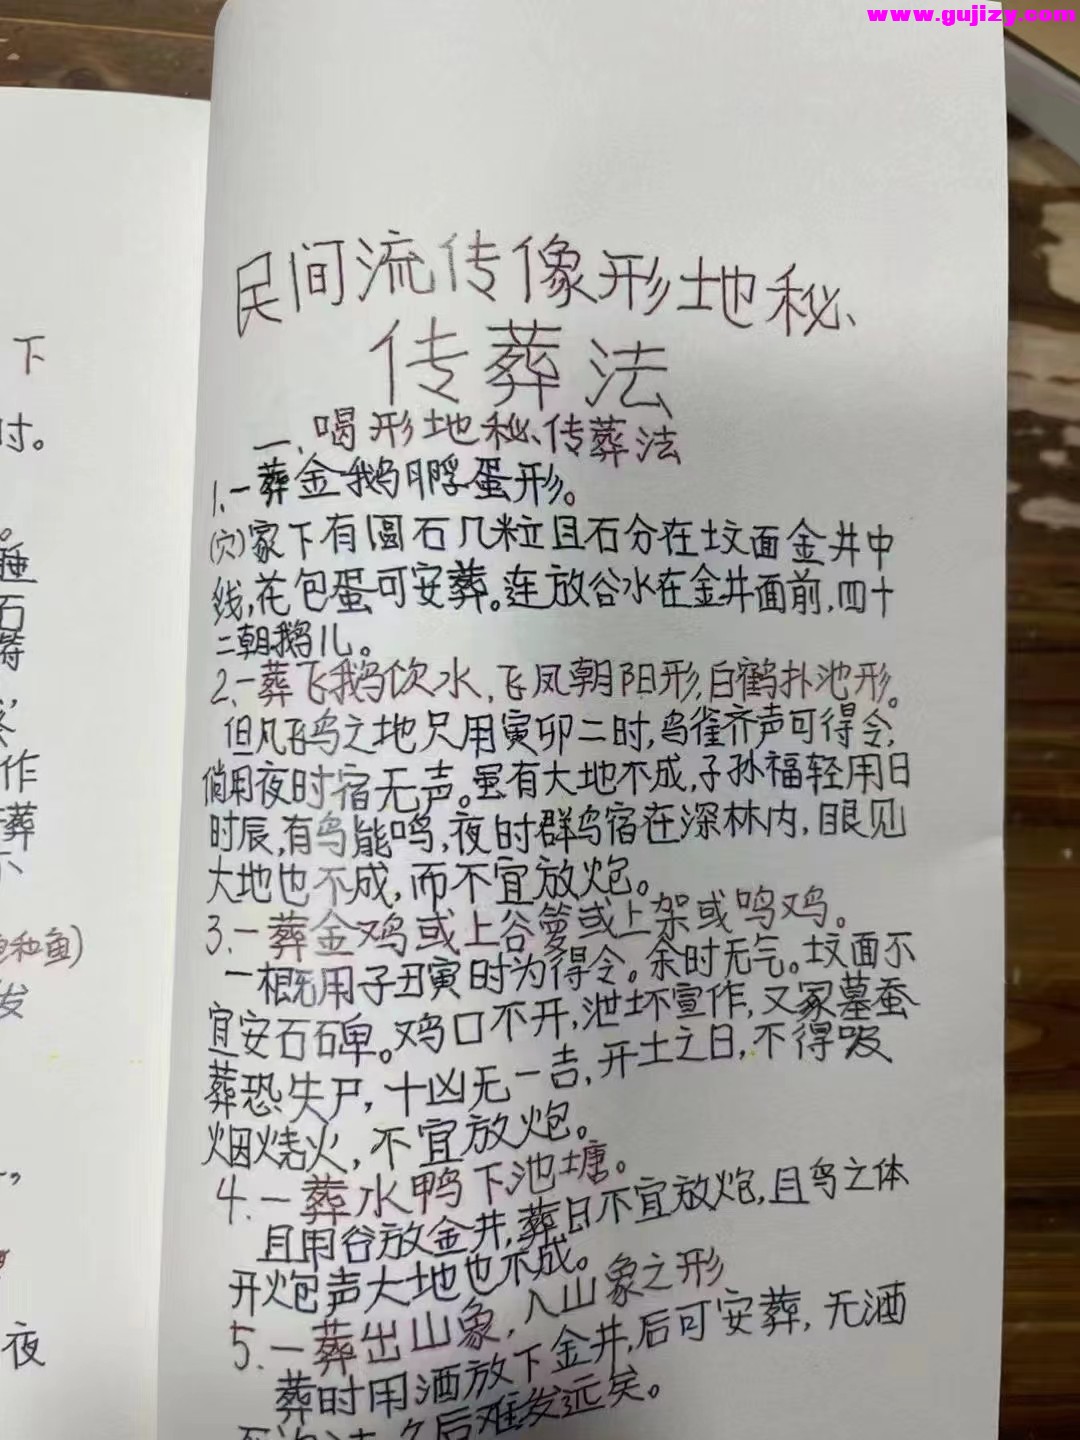 www.gujizy.com
民间流传像形地秘
传葬法
一、喝形地秘传葬法
1.一葬金鹅孵蛋形。
(穴)家下有圆石几粒且石分在坟面金井中
线,花包蛋可安葬。连放谷水在金井面前,四十
二朝鹅儿。
2.一葬飞鹅饮水,飞凤朝阳形,白鹤扑池形。
但凡飞鸟之地只用寅卯二时,鸟雀齐声可得令,
倘用夜时宿无声。虽有大地不成,子孙福轻用日
时辰,有鸟能鸣,夜时群鸟宿在深林内,眼见
大地也不成,而不宜放炮。
3.一葬金鸡或上谷箩或上架或鸣鸡。
一概用子丑寅时为得令。余时无气。坟面不
宜安石碑。鸡口不开,泄坏宣作,又冢墓蚕
葬恐失尸,十凶无一吉,开土之日,不得吸
烟烧火,不宜放炮。
4.一葬水鸭下池塘。
且用谷放金井,葬日不宜放炮,且鸟之体
开炮声大地也不成。
5.一葬出山象,入山象之形
葬时用酒放下金井,后可安葬,无酒
久后难发远矣。
下
时。
睡
石
作
葬
和鱼)
发
夜